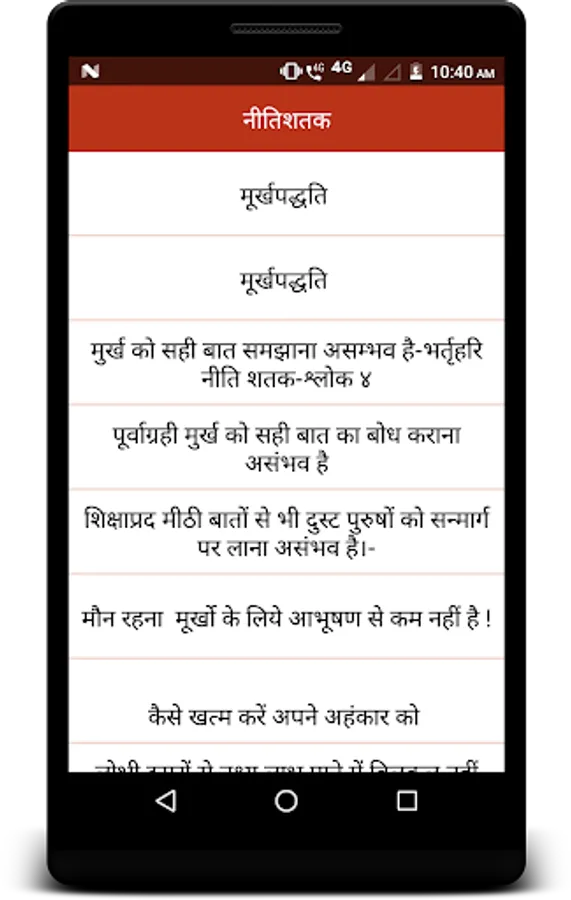 4G 4G 10:40 AM
नीतिशतक
मूर्खपद्धति
मूर्खपद्धति
मुर्ख को सही बात समझाना असम्भव है-भर्तृहरि
नीति शतक-श्लोक ४
पूर्वाग्रही मुर्ख को सही बात का बोध कराना
असंभव है
शिक्षाप्रद मीठी बातों से भी दुस्ट पुरुषों को सन्मार्ग
पर लाना असंभव है।-
मौन रहना मूर्खो के लिये आभूषण से कम नहीं है !
कैसे खत्म करें अपने अहंकार को